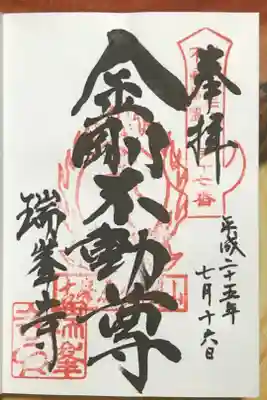 奉拝
平成二十五年
七月十六日
金剛不動尊
瑞峯寺